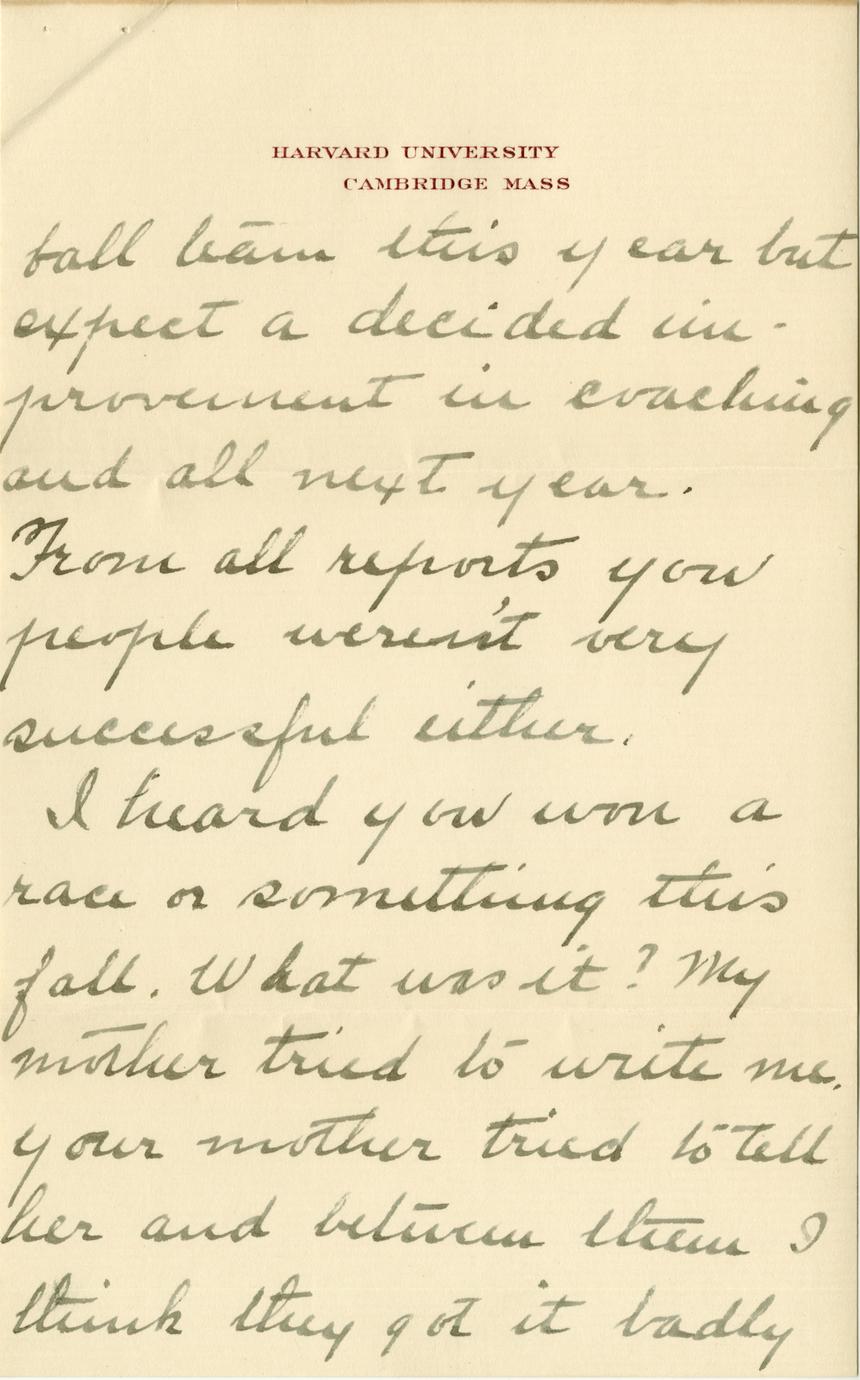 HARVARD UNIVERSITY
CAMBRIDGE MASS
ball team this year but
expect a decided im-
provement in coaching
and all next year.
From all reports you
people weren't very
successful either.
I heard you won a
race or something this
fall. What was it? My
mother tried to write me.
your mother tried to tell
her and between them I
think they got it badly